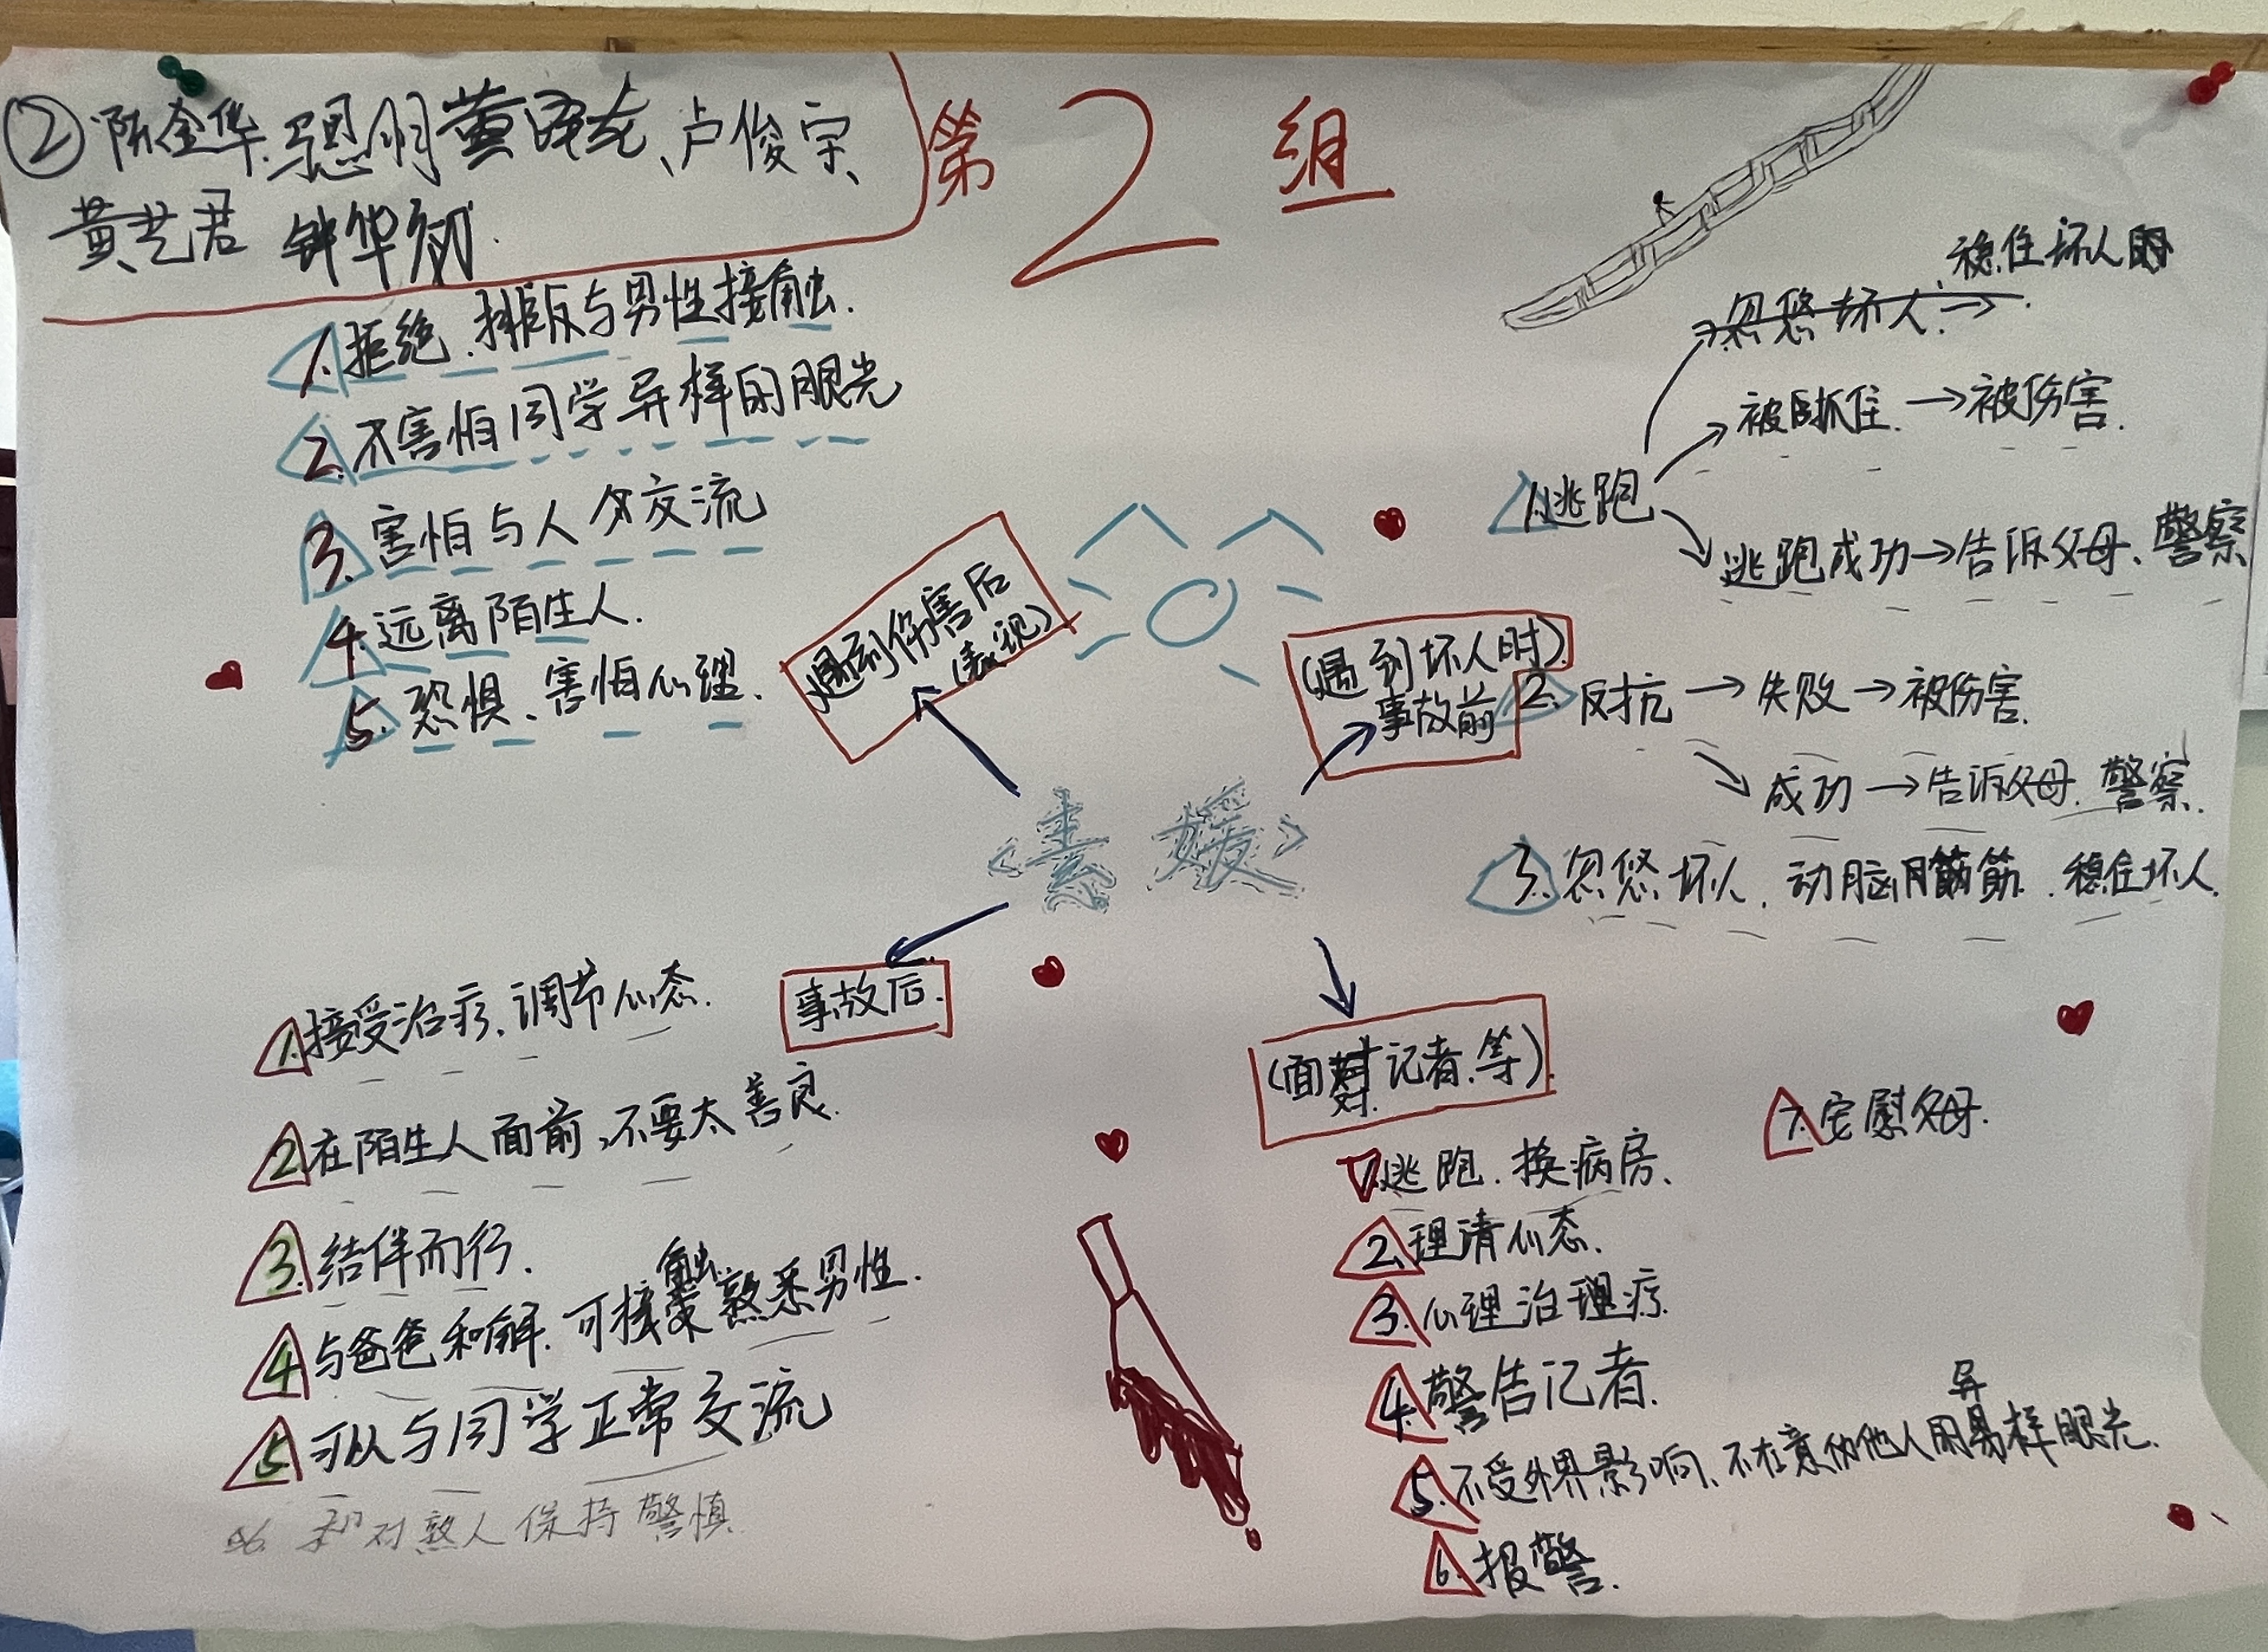 ② 陈金华、骆恩明 黄 龙、卢俊宇、
黄艺君 钟华
第2组
1.拒绝、排斥与男性接触.
2.不害怕同学异样的眼光
3.害怕与人交流
4.远离陌生人.
5.恐惧、害怕心理.
遇到伤害后
(表现)
(遇到坏人时)
事故前
1.逃跑
→忽悠坏人.→稳住坏人
→被抓住→被伤害.
→逃跑成功→告诉父母、警察
2.反抗→失败→被伤害.
→成功→告诉父母、警察.
3.忽悠坏人、动脑筋、稳住坏人.
<素媛>
事故后.
1.接受治疗、调节心态.
2.在陌生人面前,不要太善良.
3.结伴而行.
4.与爸爸和解.可接触熟悉男性.
5.可以与同学正常交流
6. 对熟人保持警慎
(面对记者、等).
1.逃跑、换病房、
2.理清心态.
3.心理治疗.
4.警告记者.
5.不受外界影响、不在意他人的异样眼光.
6.报警.
7.安慰父母.